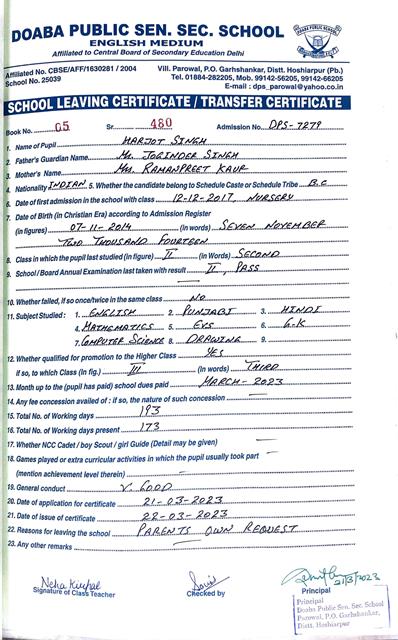 DOABA PUBLIC SEN. SEC. SCHOOL
ENGLISH MEDIUM
Affiliated to Central Board of Secondary Education Delhi
Affiliated No. CBSE/AFF/1630281 / 2004
School No. 25039
Vill. Parowal, P.O. Garhshankar, Distt. Hoshiarpur (Pb.)
Tel. 01884-282205, Mob. 99142-56205, 99142-66205
E-mail : dps_parowal@yahoo.co.in
SCHOOL LEAVING CERTIFICATE / TRANSFER CERTIFICATE
Book No. 05 Sr. 480 Admission No. DPS-7279
1. Name of Pupil HARJOT SINGH
2. Father's Guardian Name Mr. JOGINDER SINGH
3. Mother's Name Mrs. RAMANPREET KAUR
4. Nationality INDIAN 5. Whether the candidate belong to Schedule Caste or Schedule Tribe B.C
6. Date of first admission in the school with class 12-12-2017, NURSERY
7. Date of Birth (in Christian Era) according to Admission Register
(in figures) 07-11-2014 (in Words) SEVEN NOVEMBER
TWO THOUSAND FOURTEEN
8. Class in which the pupil studied (in figure) II (in Words) SECOND
9. School / Board Annual Examination last taken with result II, PASS
10. Whether failed, if so once/twice in the same class NO
11. Subject Studied : 1. ENGLISH 2. PUNJABI 3. HINDI
4. MATHEMATICS 5. EVS 6. G.K
7. COMPUTER SCIENCE 8. DRAWING 9.
12. Whether qualified for promotion to the Higher Class YES
if so, to which Class (In fig.) III (In words) THIRD
13. Month up to the (pupil has paid) school dues paid MARCH-2023
14. Any fee concession availed of : if so, the nature of such concession —
15. Total No. of Working days 193
16. Total No. of Working days present 173
17. Whether NCC Cadet / boy Scout / girl Guide (Detail may be given) —
18. Games played or extra curricular activities in which the pupil usually took part —
(mention achievement level therein) —
19. General conduct V. GOOD
20. Date of application for certificate 21-03-2023
21. Date of issue of certificate 22-03-2023
22. Reasons for leaving the school PARENTS OWN REQUEST
23. Any other remarks —
Neha
Signature of Class Teacher
Checked by
Principal
Principal
Doaba Public Sen. Sec. School
Parowal, P.O. Garhshankar,
Distt. Hoshiarpur